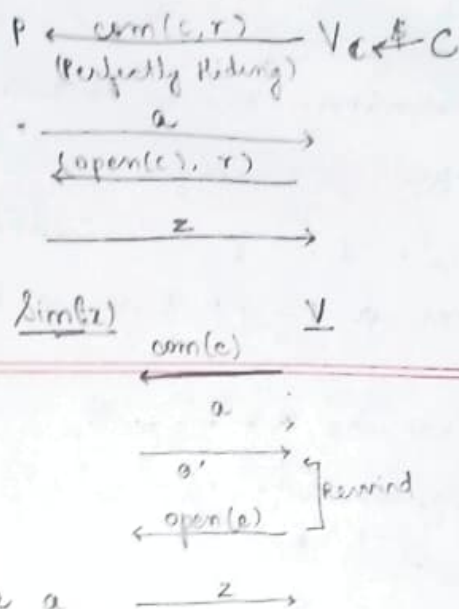 P com(c, r) V c ←$ C
(Perfectly Hiding)
a
(open(c), r)
z
Sim(x) V
com(c)
a
a'
Rewind
open(c)
a z